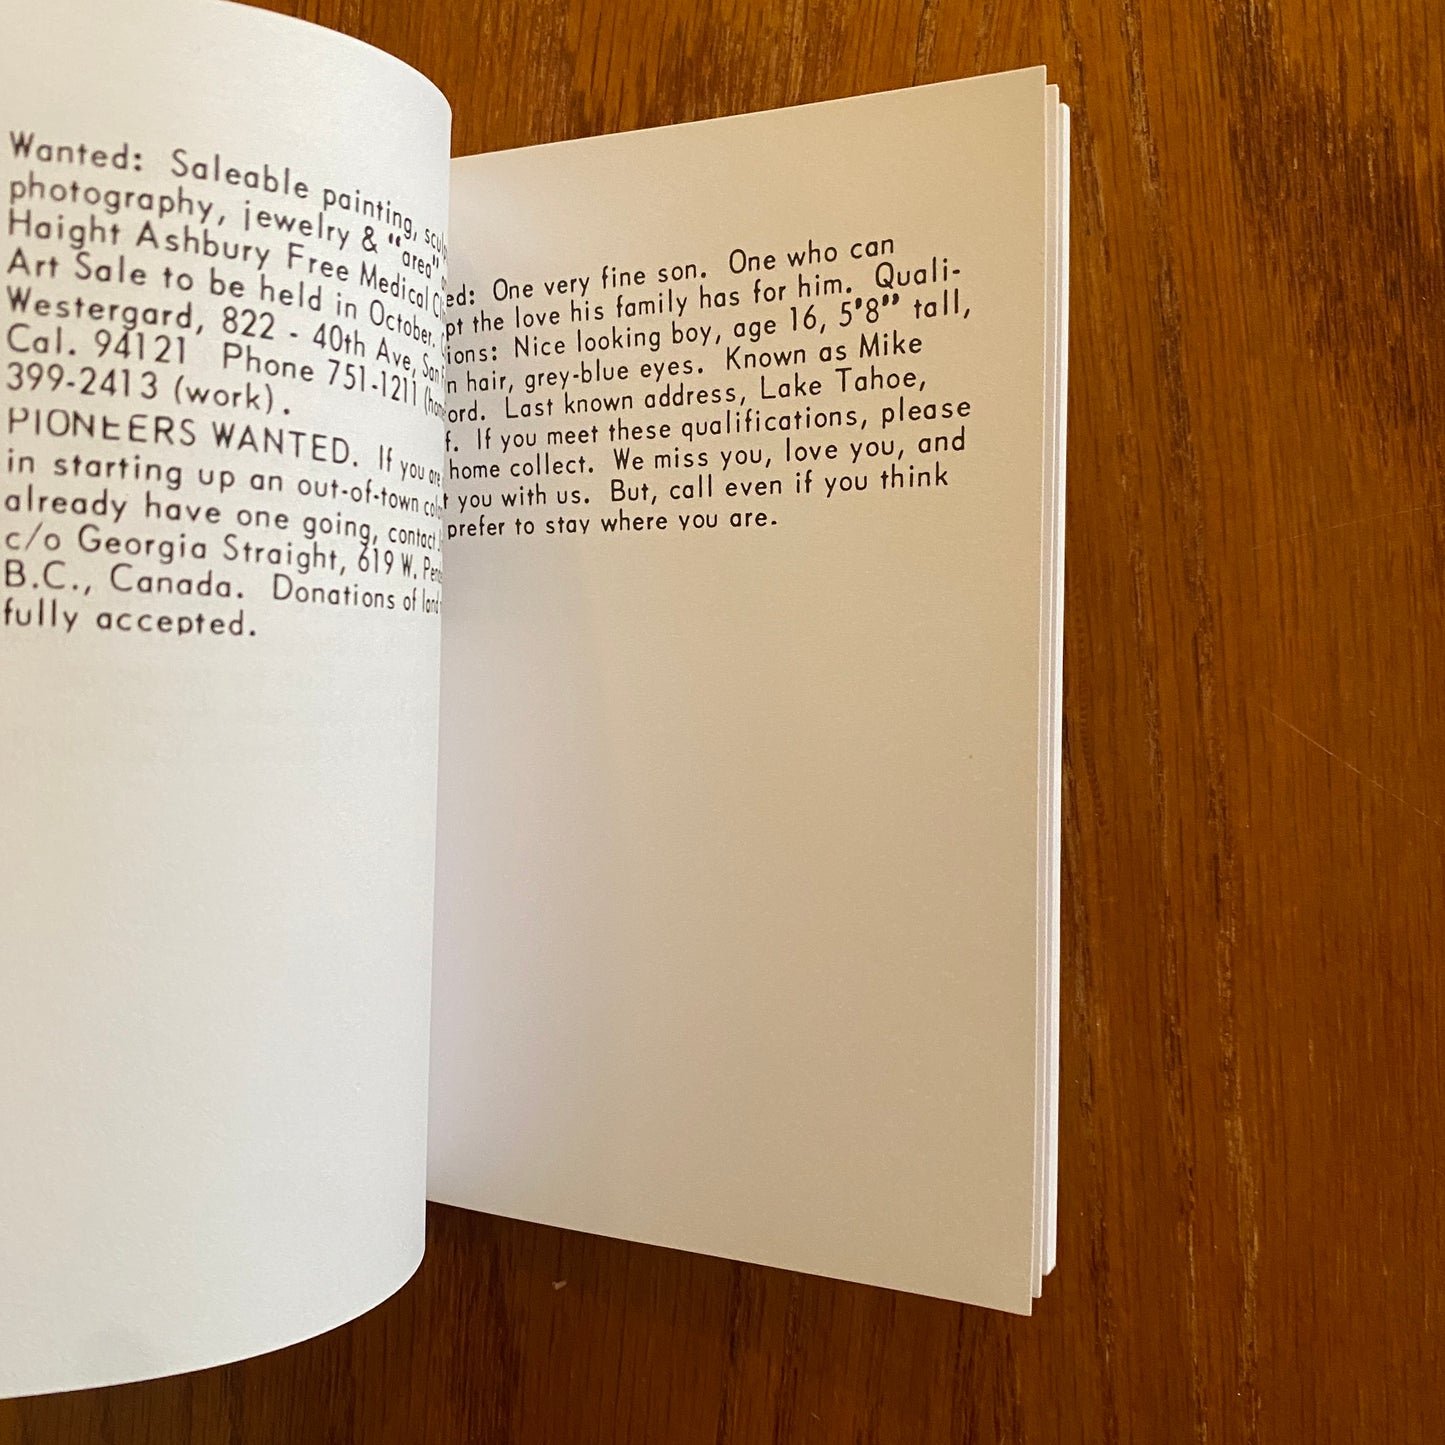 Wanted: Saleable painting,
photography, jewelry & "area"
Haight Ashbury Free Medical
Art Sale to be held in October.
Westergard, 822 - 40th Ave, San
Cal. 94121 Phone 751-1211
399-2413 (work).
PIONEERS WANTED. If you are
in starting up an out-of-town
already have one going, contact
c/o Georgia Straight, 619 W.
B.C., Canada. Donations of land
fully accepted.
ed: One very fine son. One who can
pt the love his family has for him. Quali-
ions: Nice looking boy, age 16, 5'8" tall,
n hair, grey-blue eyes. Known as Mike
ord. Last known address, Lake Tahoe,
f. If you meet these qualifications, please
home collect. We miss you, love you, and
t you with us. But, call even if you think
prefer to stay where you are.